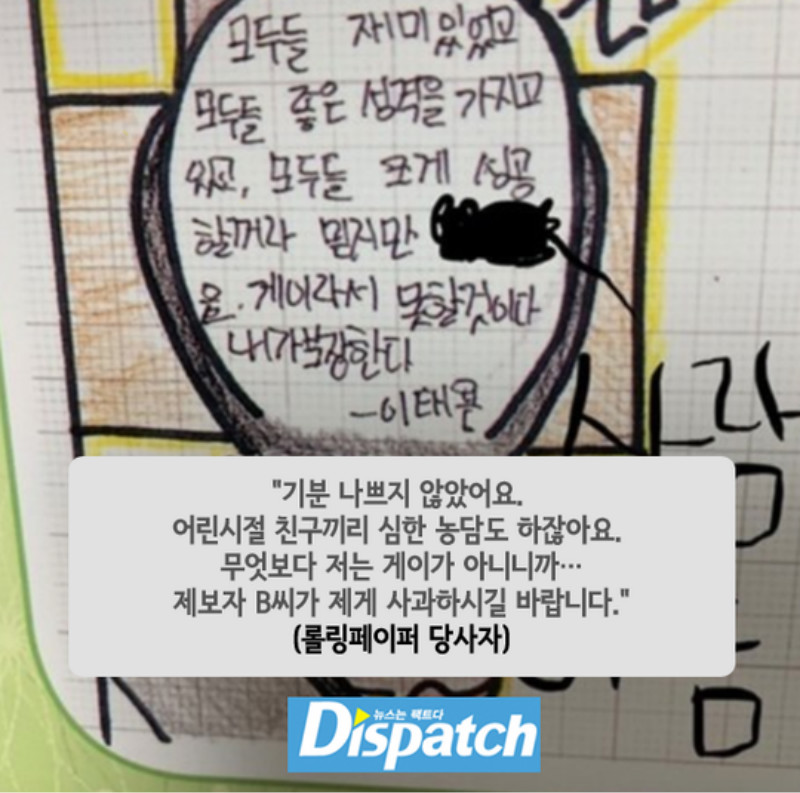 모두들 재미있었고
모두들 좋은 성격을 가지고
있고, 모두들 크게 성공
할꺼라 믿지만
은. 게이라서 못할것이다
내가 보장한다
-이태용
사람
"기분 나쁘지 않았어요.
어린시절 친구끼리 심한 농담도 하잖아요.
무엇보다 저는 게이가 아니니까…
제보자 B씨가 제게 사과하시길 바랍니다."
(롤링페이퍼 당사자)
뉴스는 팩트다
Dispatch